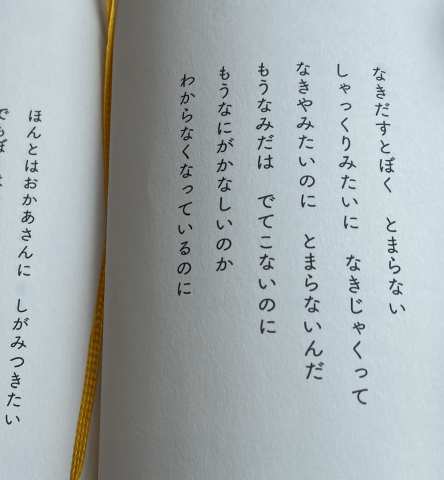 なきだすとぼく　とまらない
しゃっくりみたいに　なきじゃくって
なきやみたいのに　とまらないんだ
もうなみだは　でてこないのに
もうなにがかなしいのか
わからなくなっているのに
ほんとはおかあさんに　しがみつきたい